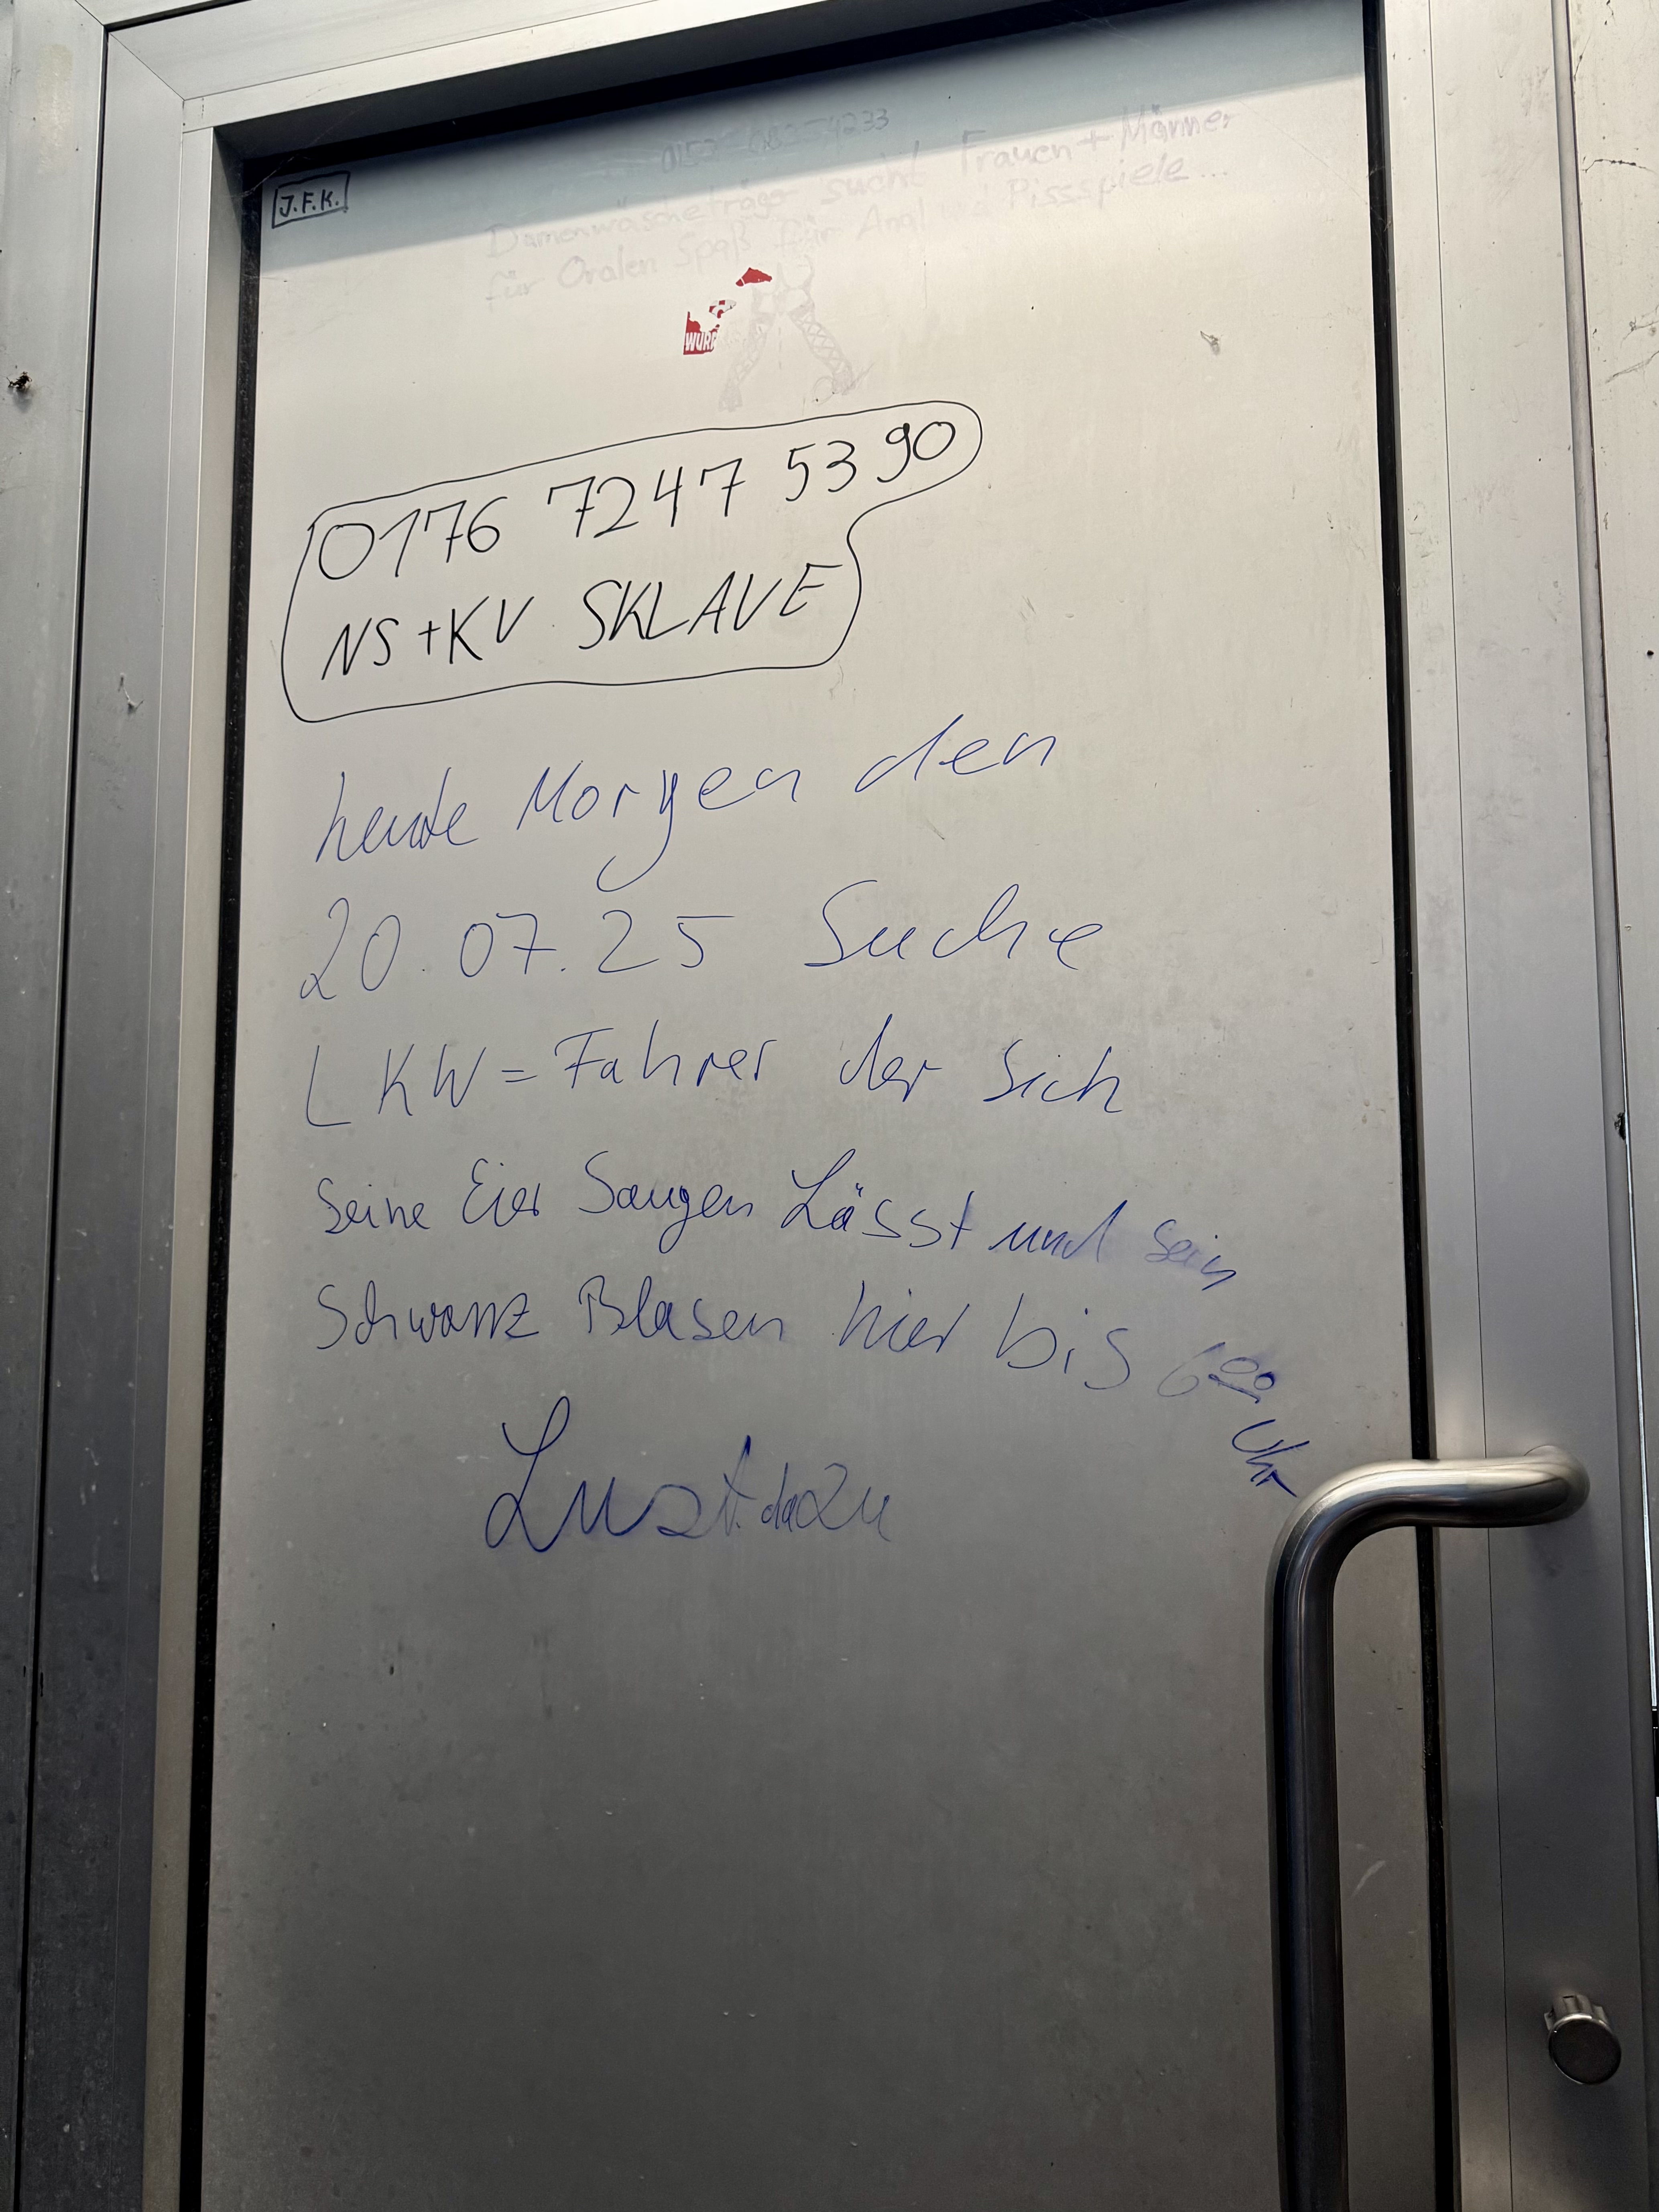 J.F.K.
Damenwäscheträger sucht Frauen + Männer
für Oralen Spaß für Anal Pissspiele...
WURF
0176 7247 5390
NS+KV SKLAVE
heute Morgen den
20.07.25 Suche
LKW=Fahrer der Sich
Seine Eier Saugen Lässt und sein
Schwanz Blasen hier bis 6 00 Uhr
Lust dazu